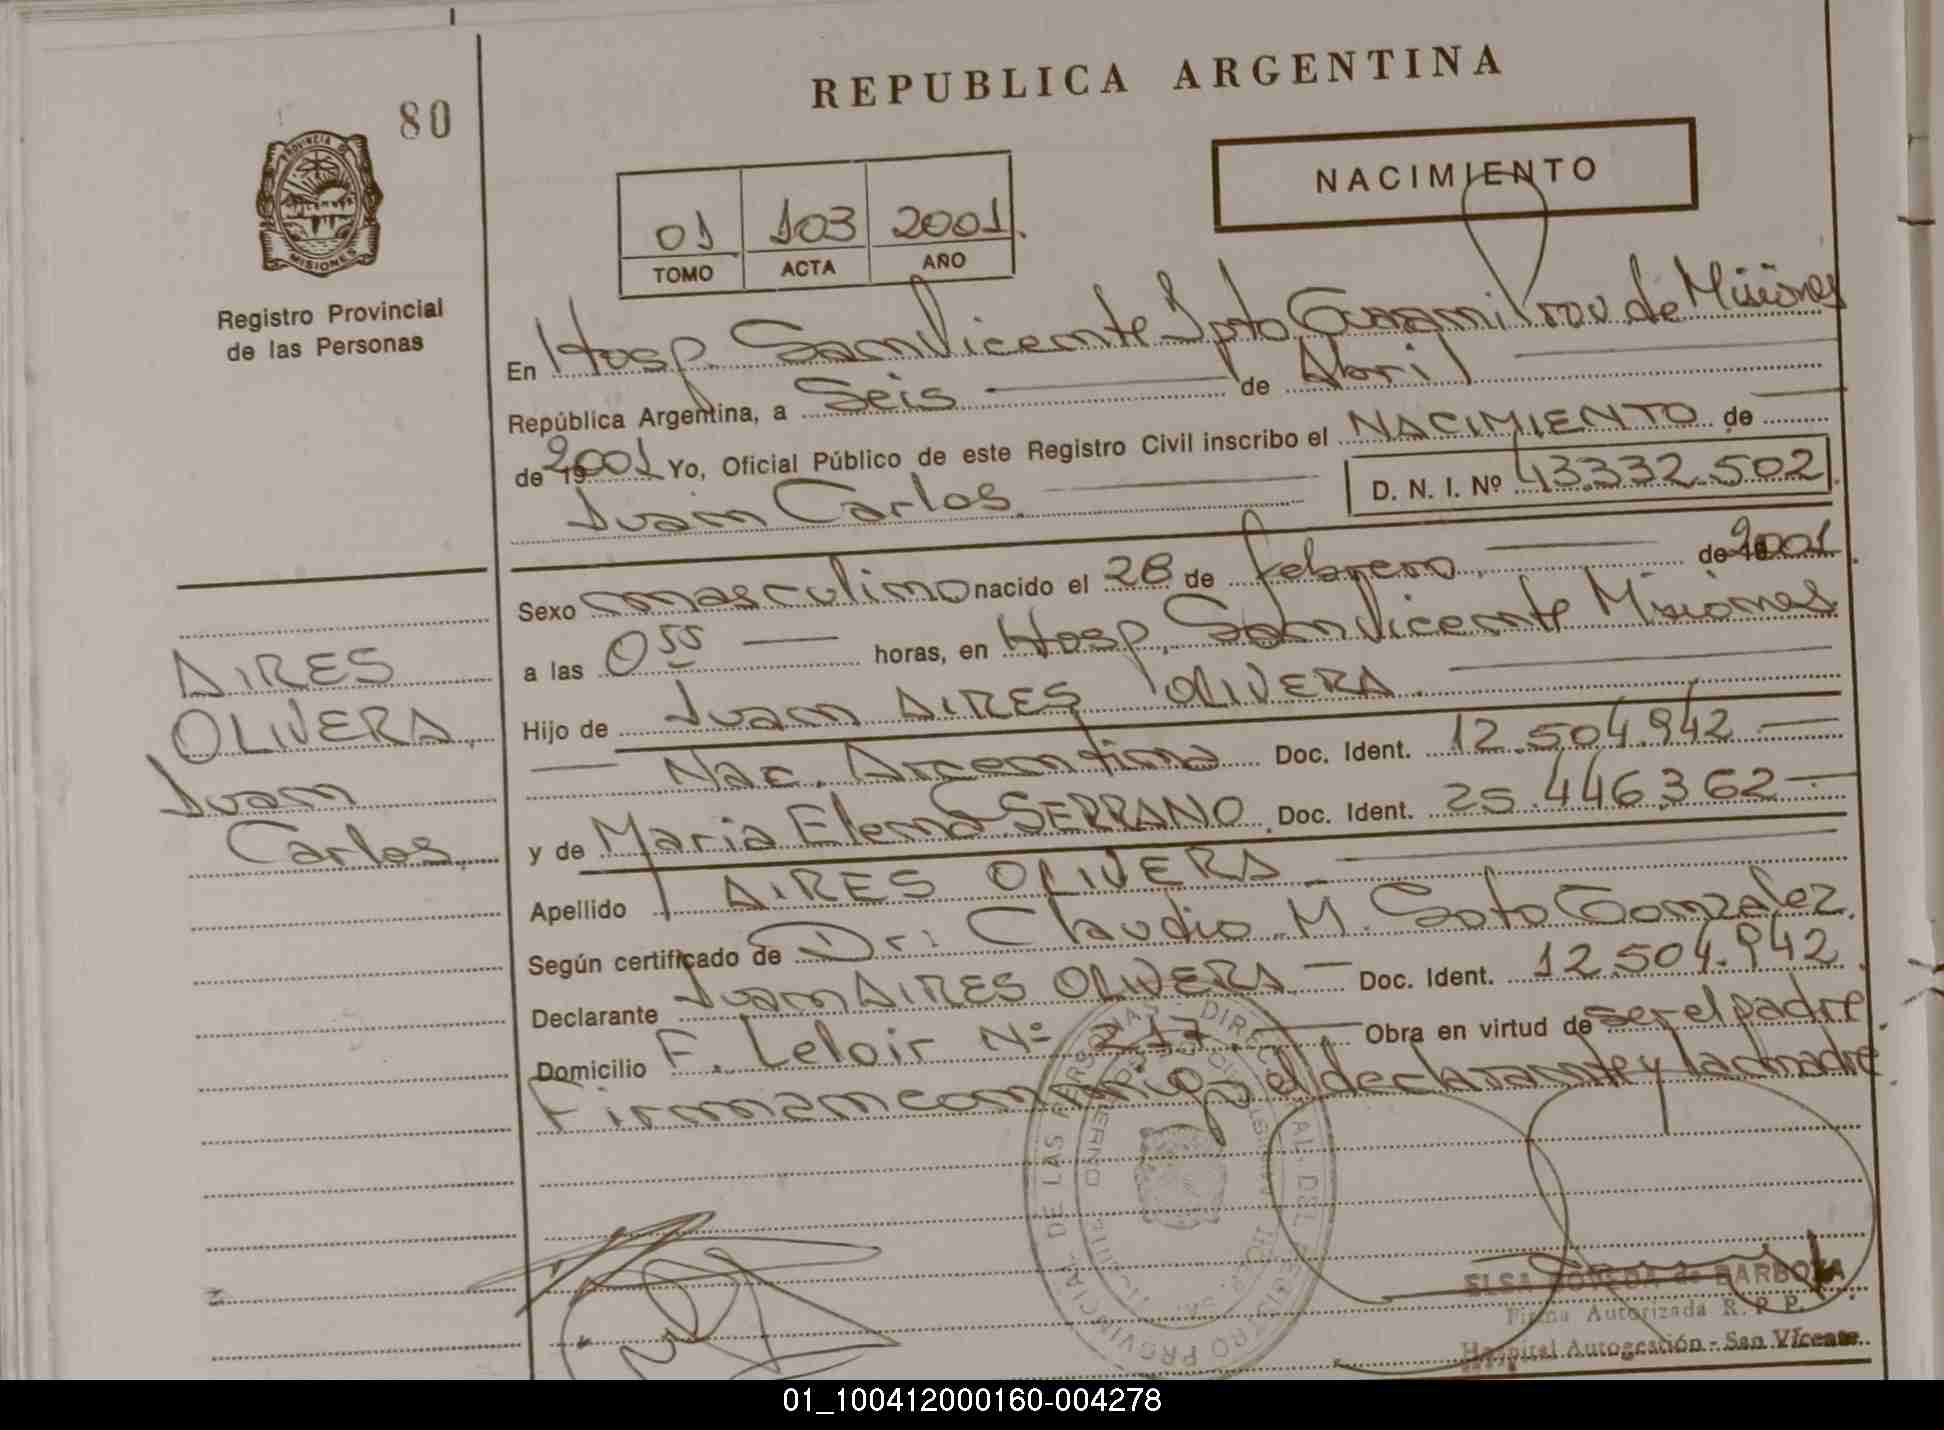 REPUBLICA ARGENTINA
80
NACIMIENTO
01 103 2001.
TOMO ACTA AÑO
PROVINCIA DE
MISIONES
Registro Provincial
de las Personas
En Hosp. San Vicente Dpto Guarani Prov de Misiones
República Argentina, a Seis de Abril
de 19 2001 Yo, Oficial Público de este Registro Civil inscribo el NACIMIENTO de
Juan Carlos. D. N. I. Nº 43.332.502
Sexo masculino nacido el 28 de febrero de 19 2001
a las 0 55 horas, en Hosp. San Vicente Misiones
Hijo de Juan AIRES OLIVERA.
Nac. Argentina Doc. Ident. 12.504.942
y de Maria Elena SERRANO Doc. Ident. 25.446.362
Apellido AIRES OLIVERA
Según certificado de Dr. Claudio M. Soto Gonzalez
Declarante Juan AIRES OLIVERA Doc. Ident. 12.504.942
Domicilio F. Leloir Nº 217 Obra en virtud de ser el padre
Firman conmigo, el declarante y la madre
AIRES
OLIVERA,
Juan
Carlos
ELSA de BARBOZA
Firma Autorizada R. P. P.
Hospital Autogestión - San Vicente
01_100412000160-004278